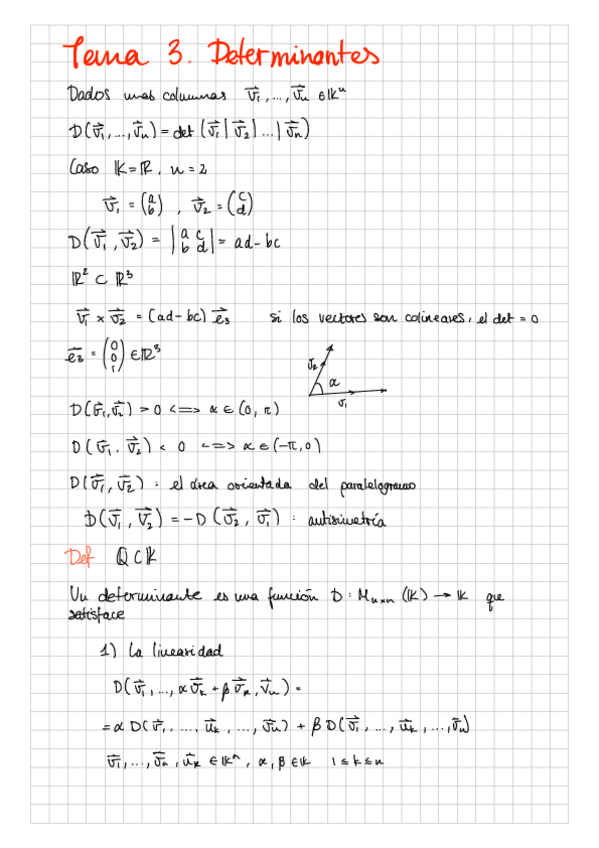 Tema 3. Determinantes
Dados unas columnas v⃗₁, ..., v⃗ₙ ∈ 𝕂ⁿ
D(v⃗₁, ..., v⃗ₙ) = det (v⃗₁ | v⃗₂ | ... | v⃗ₙ)
Caso 𝕂 = ℝ, n = 2
v⃗₁ = (a b), v⃗₂ = (c d)
D(v⃗₁, v⃗₂) = |a c; b d| = ad - bc
ℝ² ⊂ ℝ³
v⃗₁ × v⃗₂ = (ad - bc) e⃗₃ si los vectores son colineares, el det = 0
e⃗₃ = (0 0 1) ∈ ℝ³
v⃗₂
α
v⃗₁
D(v⃗₁, v⃗₂) > 0 <=> α ∈ (0, π)
D(v⃗₁, v⃗₂) < 0 <=> α ∈ (-π, 0)
D(v⃗₁, v⃗₂) : el área orientada del paralelogramo
D(v⃗₁, v⃗₂) = -D(v⃗₂, v⃗₁) : antisimetría
Def ℚ ⊂ 𝕂
Un determinante es una función D : Mₙₓₙ(𝕂) → 𝕂 que
satisface
1) La linearidad
D(v⃗₁, ..., αv⃗ₖ + βv⃗ₖ, v⃗ₙ) =
= α D(v⃗₁, ..., u⃗ₖ, ..., v⃗ₙ) + β D(v⃗₁, ..., u⃗ₖ, ..., v⃗ₙ)
v⃗₁, ..., v⃗ₙ, u⃗ₖ ∈ 𝕂ⁿ, α, β ∈ 𝕂 1 ≤ k ≤ n